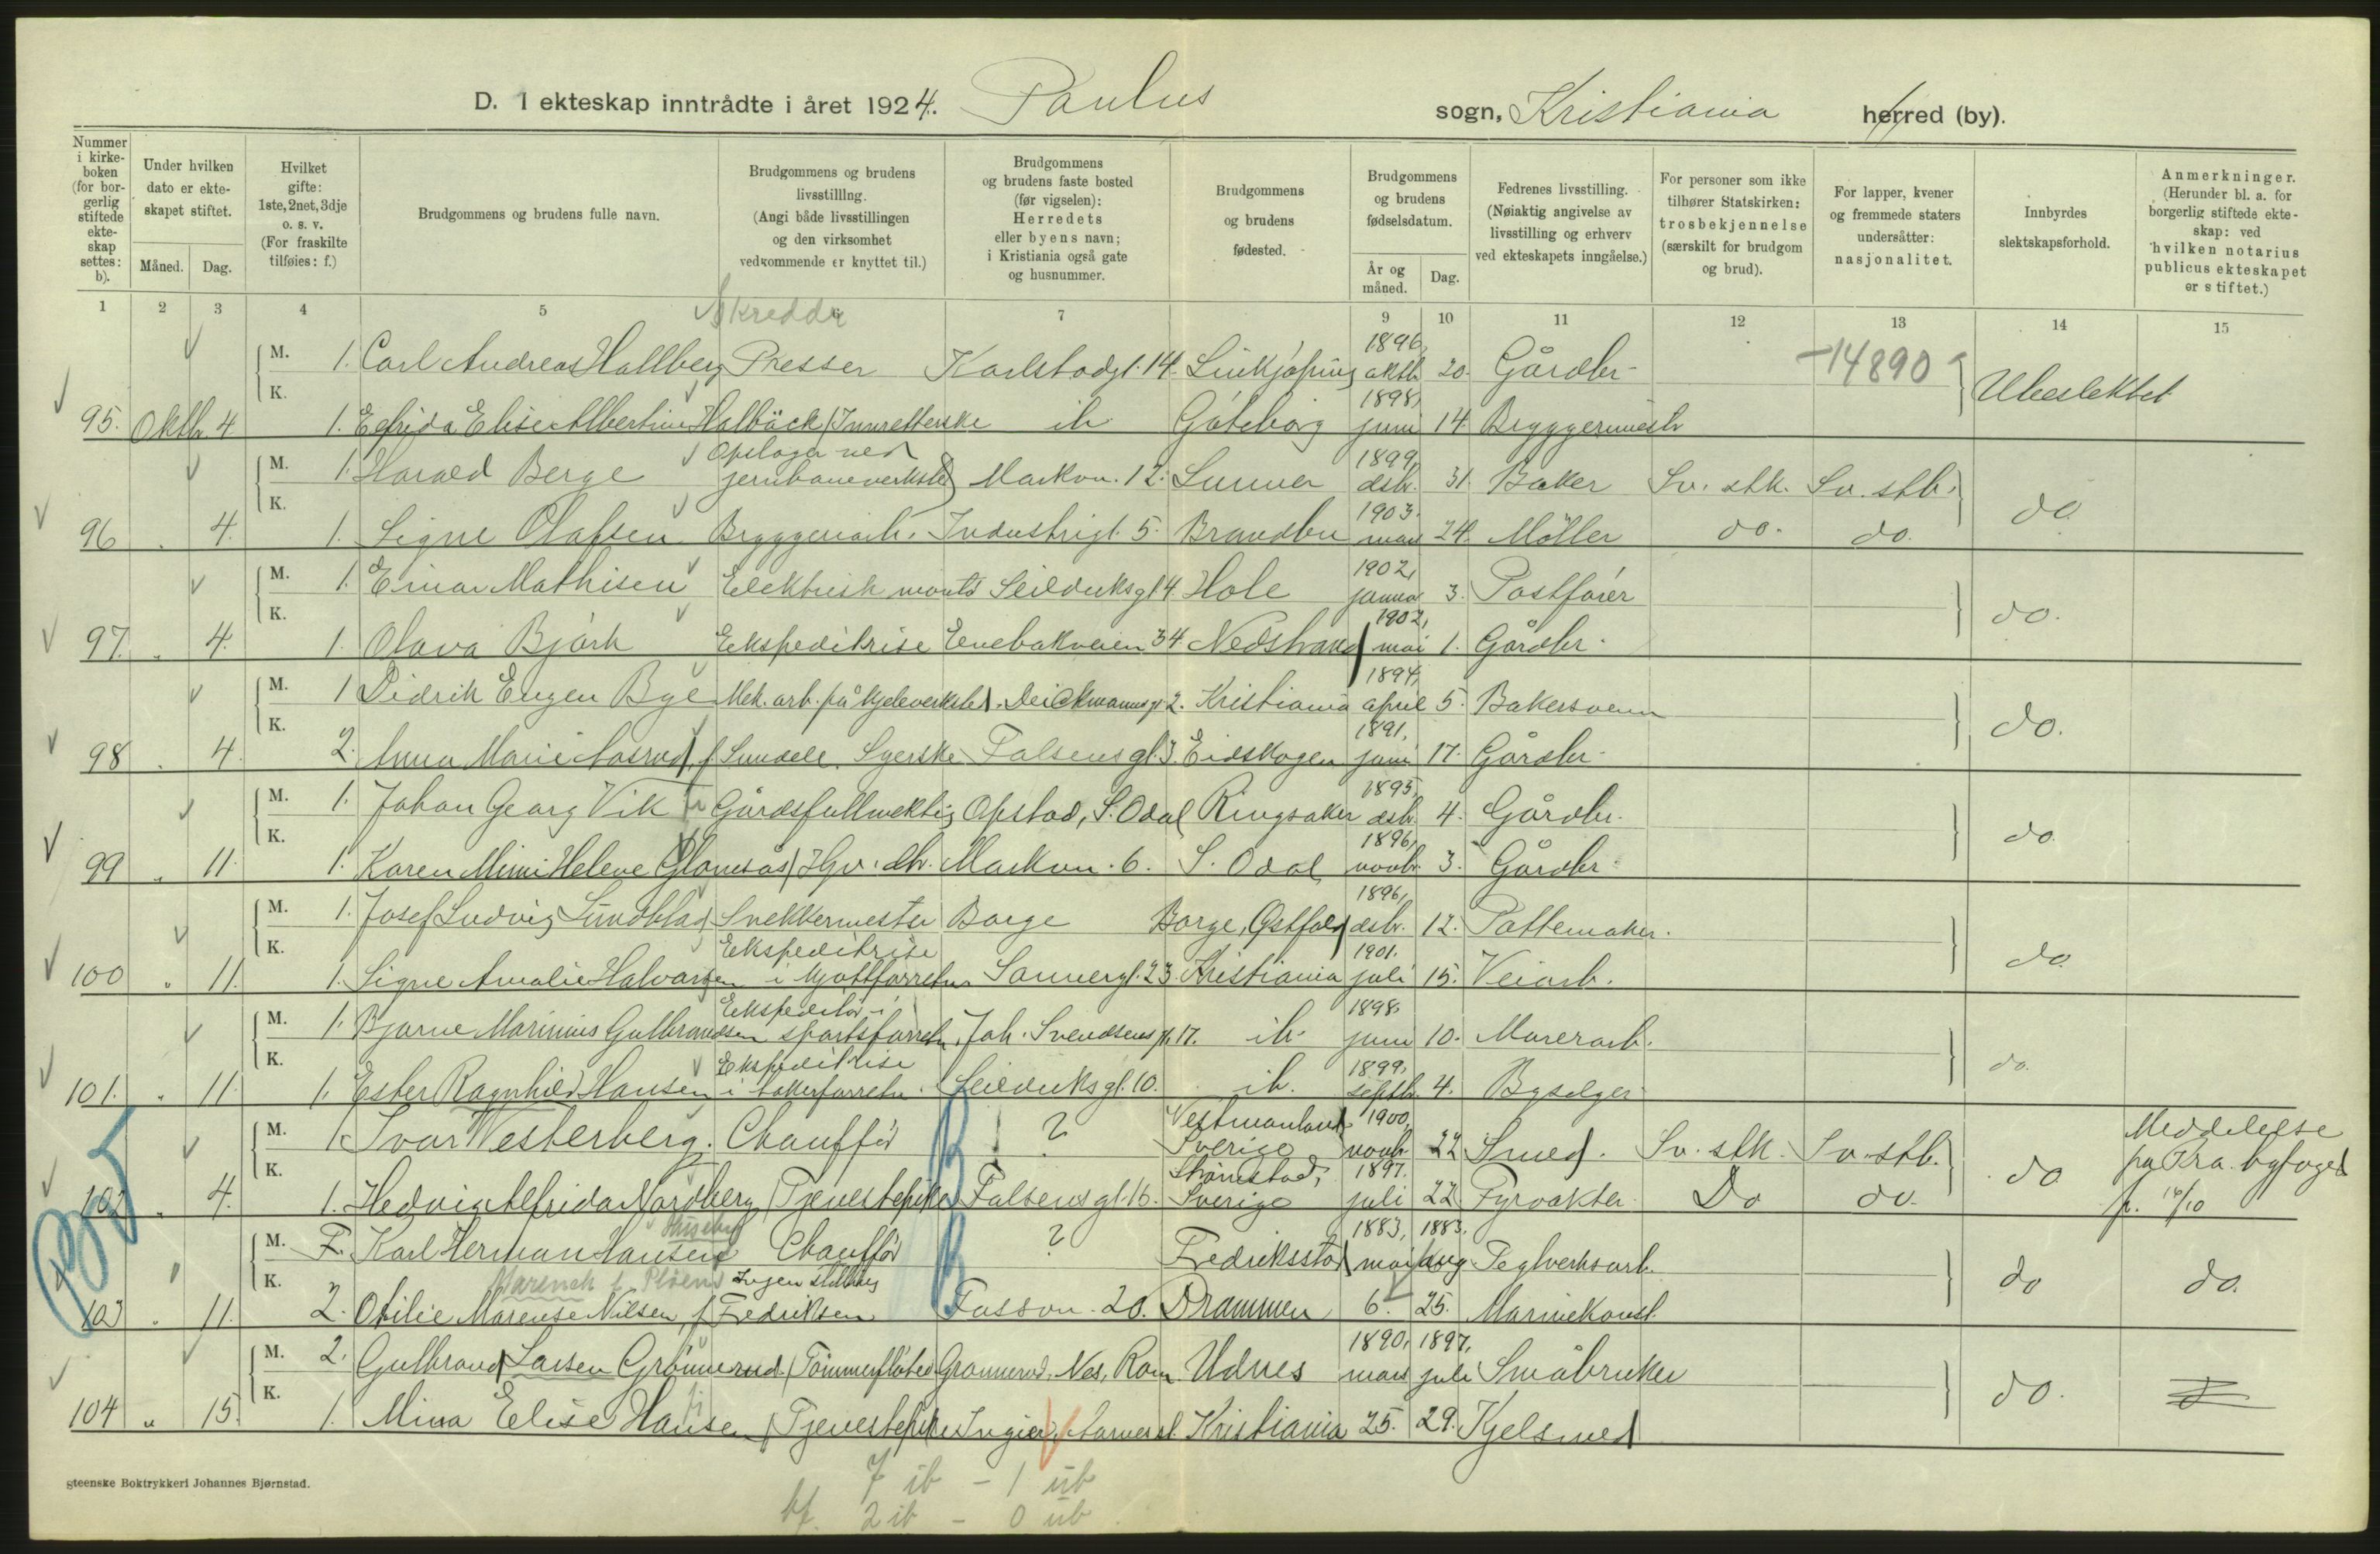 D. I ekteskap inntrådte i året 1924. Paulus sogn, Kristiania herred (by).
Nummer i kirkeboken (for borgerlig stiftede ekteskap settes: b).
Under hvilken dato er ekteskapet stiftet.
Måned. Dag.
Hvilket gifte: 1ste, 2net, 3dje o. s. v. (For fraskilte tilføies: f.)
Brudgommens og brudens fulle navn.
Brudgommens og brudens livsstilllng. (Angi både livsstillingen og den virksomhet vedkommende er knyttet til.)
Brudgommens og brudens faste bosted (før vigselen): Herredets eller byens navn; i Kristiania også gate og husnummer.
Brudgommens og brudens fødested.
Brudgommens og brudens fødselsdatum.
År og måned. Dag.
Fedrenes livsstilling. (Nøiaktig angivelse av livsstilling og erhverv ved ekteskapets inngåelse.)
For personer som ikke tilhører Statskirken: trosbekjennelse (særskilt for brudgom og brud).
For lapper, kvener og fremmede staters undersåtter: nasjonalitet.
Innbyrdes slektskapsforhold.
Anmerkninger. (Herunder bl. a. for borgerlig stiftede ekteskap: ved hvilken notarius publicus ekteskapet er stiftet.)
1 2 3 4 5 7 9 10 11 12 13 14 15
Skredder
M. 1. Carl Andreas Hallberg Presser Karlstadgt. 14. Linkjøping 1896, oktb. 20. Gårdbr. -14890
K.
95. Oktb. 4 1. Elfrida Elise Albertine Halbäck Innretterske ib. Gøteborg 1898, juni 14. Bryggermestr Ubeslektet
M. 1. Harald Berge Opslager ved jernbaneverksted Markvn. 12. Lunner 1899, desb. 31. Baker Sv. stk. Sv. stb.
K.
96 . 4. 1. Signe Olafsen Bryggeriarb. Industrigt. 5. Brandbu 1903. mars 24. Møller do. do. do.
M. 1. Einar Mathisen Elektrisk mont. Seilduksgt 4 Hole 1902, januar 3. Postfører
K.
97. . 4. 1. Olava Bjørk Ekspeditrise Enebakveien 34 Nedstrand 1902, mai 1. Gårdbr. do.
M. 1 Didrik Eugen Bye Mek. arb. på kjeleverksted. Deichmannsgt 2. Kristiania 1894, april 5. Bakersvenn
K.
98 . 4. 2. Anna Marie Aasrud, f. Sundele. Syerske Falsens gt. 3. Eidskogen 1891, juni 17. Gårdbr. do.
M. 1. Johan Georg Vik Gårdsfullmektig Opstad, S. Odal Ringsaker 1895, desb. 4. Gårdbr.
K.
99 . 11. 1. Karen Mimi Helene Glomsås Hgv. db. Markvn. 6. S. Odal 1896, novb. 3. Gårdbr. do.
M. 1. Josef Ludvig Sundblad Snekkermester Borge Borge, Østfold 1896, desb. 12. Pottemaker.
K.
100 . 11. 1. Signe Amalie Halvorsen Ekspeditrise i kjøttforretn. Sannergt. 23 Kristiania 1901. juli 15. Veiarb. do.
M. 1. Bjarne Marinius Gulbrandsen Ekspeditør i sportsforretn. Joh. Svendsens gt. 17. ib. 1898. juni 10. Murerarb.
K.
101. . 11. 1. Ester Ragnhild Hansen Ekspeditrise i bakerforretn. Seilduksgt. 10. ib. 1899, septb. 4. Byselger do.
M. 1. Ivar Westerberg. Chauffør ? Vestmanland Sverige 1900, novb. 22 Smed. Sv. stk. Sv. stb. Meddelelse
K.
102 . 4. 1. Hedvig Alfrida Nordberg Tjenestepike Falsens gt. 16. Strømstad, Sverige 1897. juli 22. Fyrvokter Do do. do fra Kra. byfoged
p. 14/10
M. F. Karl Herman Hansen Chauffør ? Fredriksstad 1883, 1883. mai aug Teglverksarb.
K. Ingen stilling
103 . 11. 2. Otilie Marense Nilsen, f. Fredriksen Fossvn. 20. Drammen 6. 25. Marinekonst. do do.
M. 2. Gulbrand Larsen Grønnerud. Tømmerfløter Grønnerud, Nes, Rom. Udnes 1890, 1897, mars juli Småbruker
K.
104 " 15. 1. Mina Elise Hansen Tjenestepike Kristiania 25. 29. Kjelsmed do.
gteenske Boktrykkeri Johannes Bjørnstad.
7 ib - 1 ub
bf. 2 ib - 0 ub